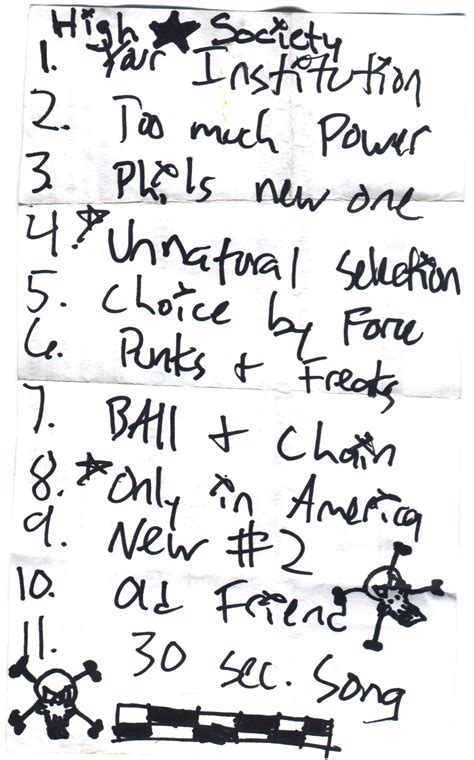 High ★ Society
1. Your Institution
2. Too much Power
3. Phil's new one
4. * Unnatural selection
5. Choice by Force
6. Punks + Freaks
7. BAll + Chain
8. * Only in America
9. New #2
10. Old Friend
11. 30 sec. Song